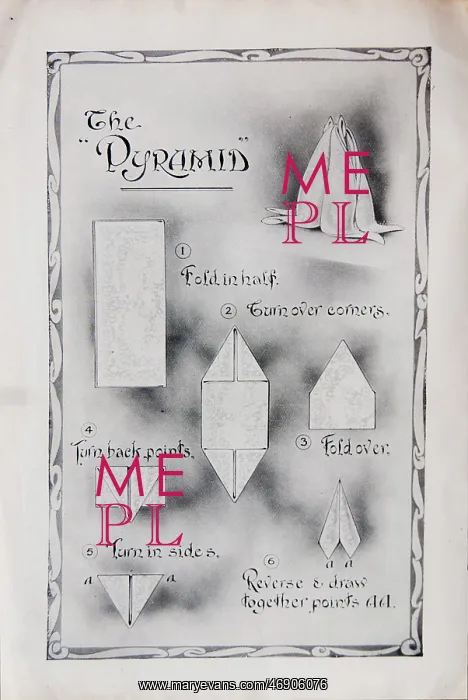 The
"PYRAMID"
ME
PL
1
Fold in half.
2 Turn over corners.
3 Fold over.
4
Turn back points.
ME
PL
5 Turn in sides.
a a
6
a a
Reverse & draw
together points AA.
www.maryevans.com/46906076